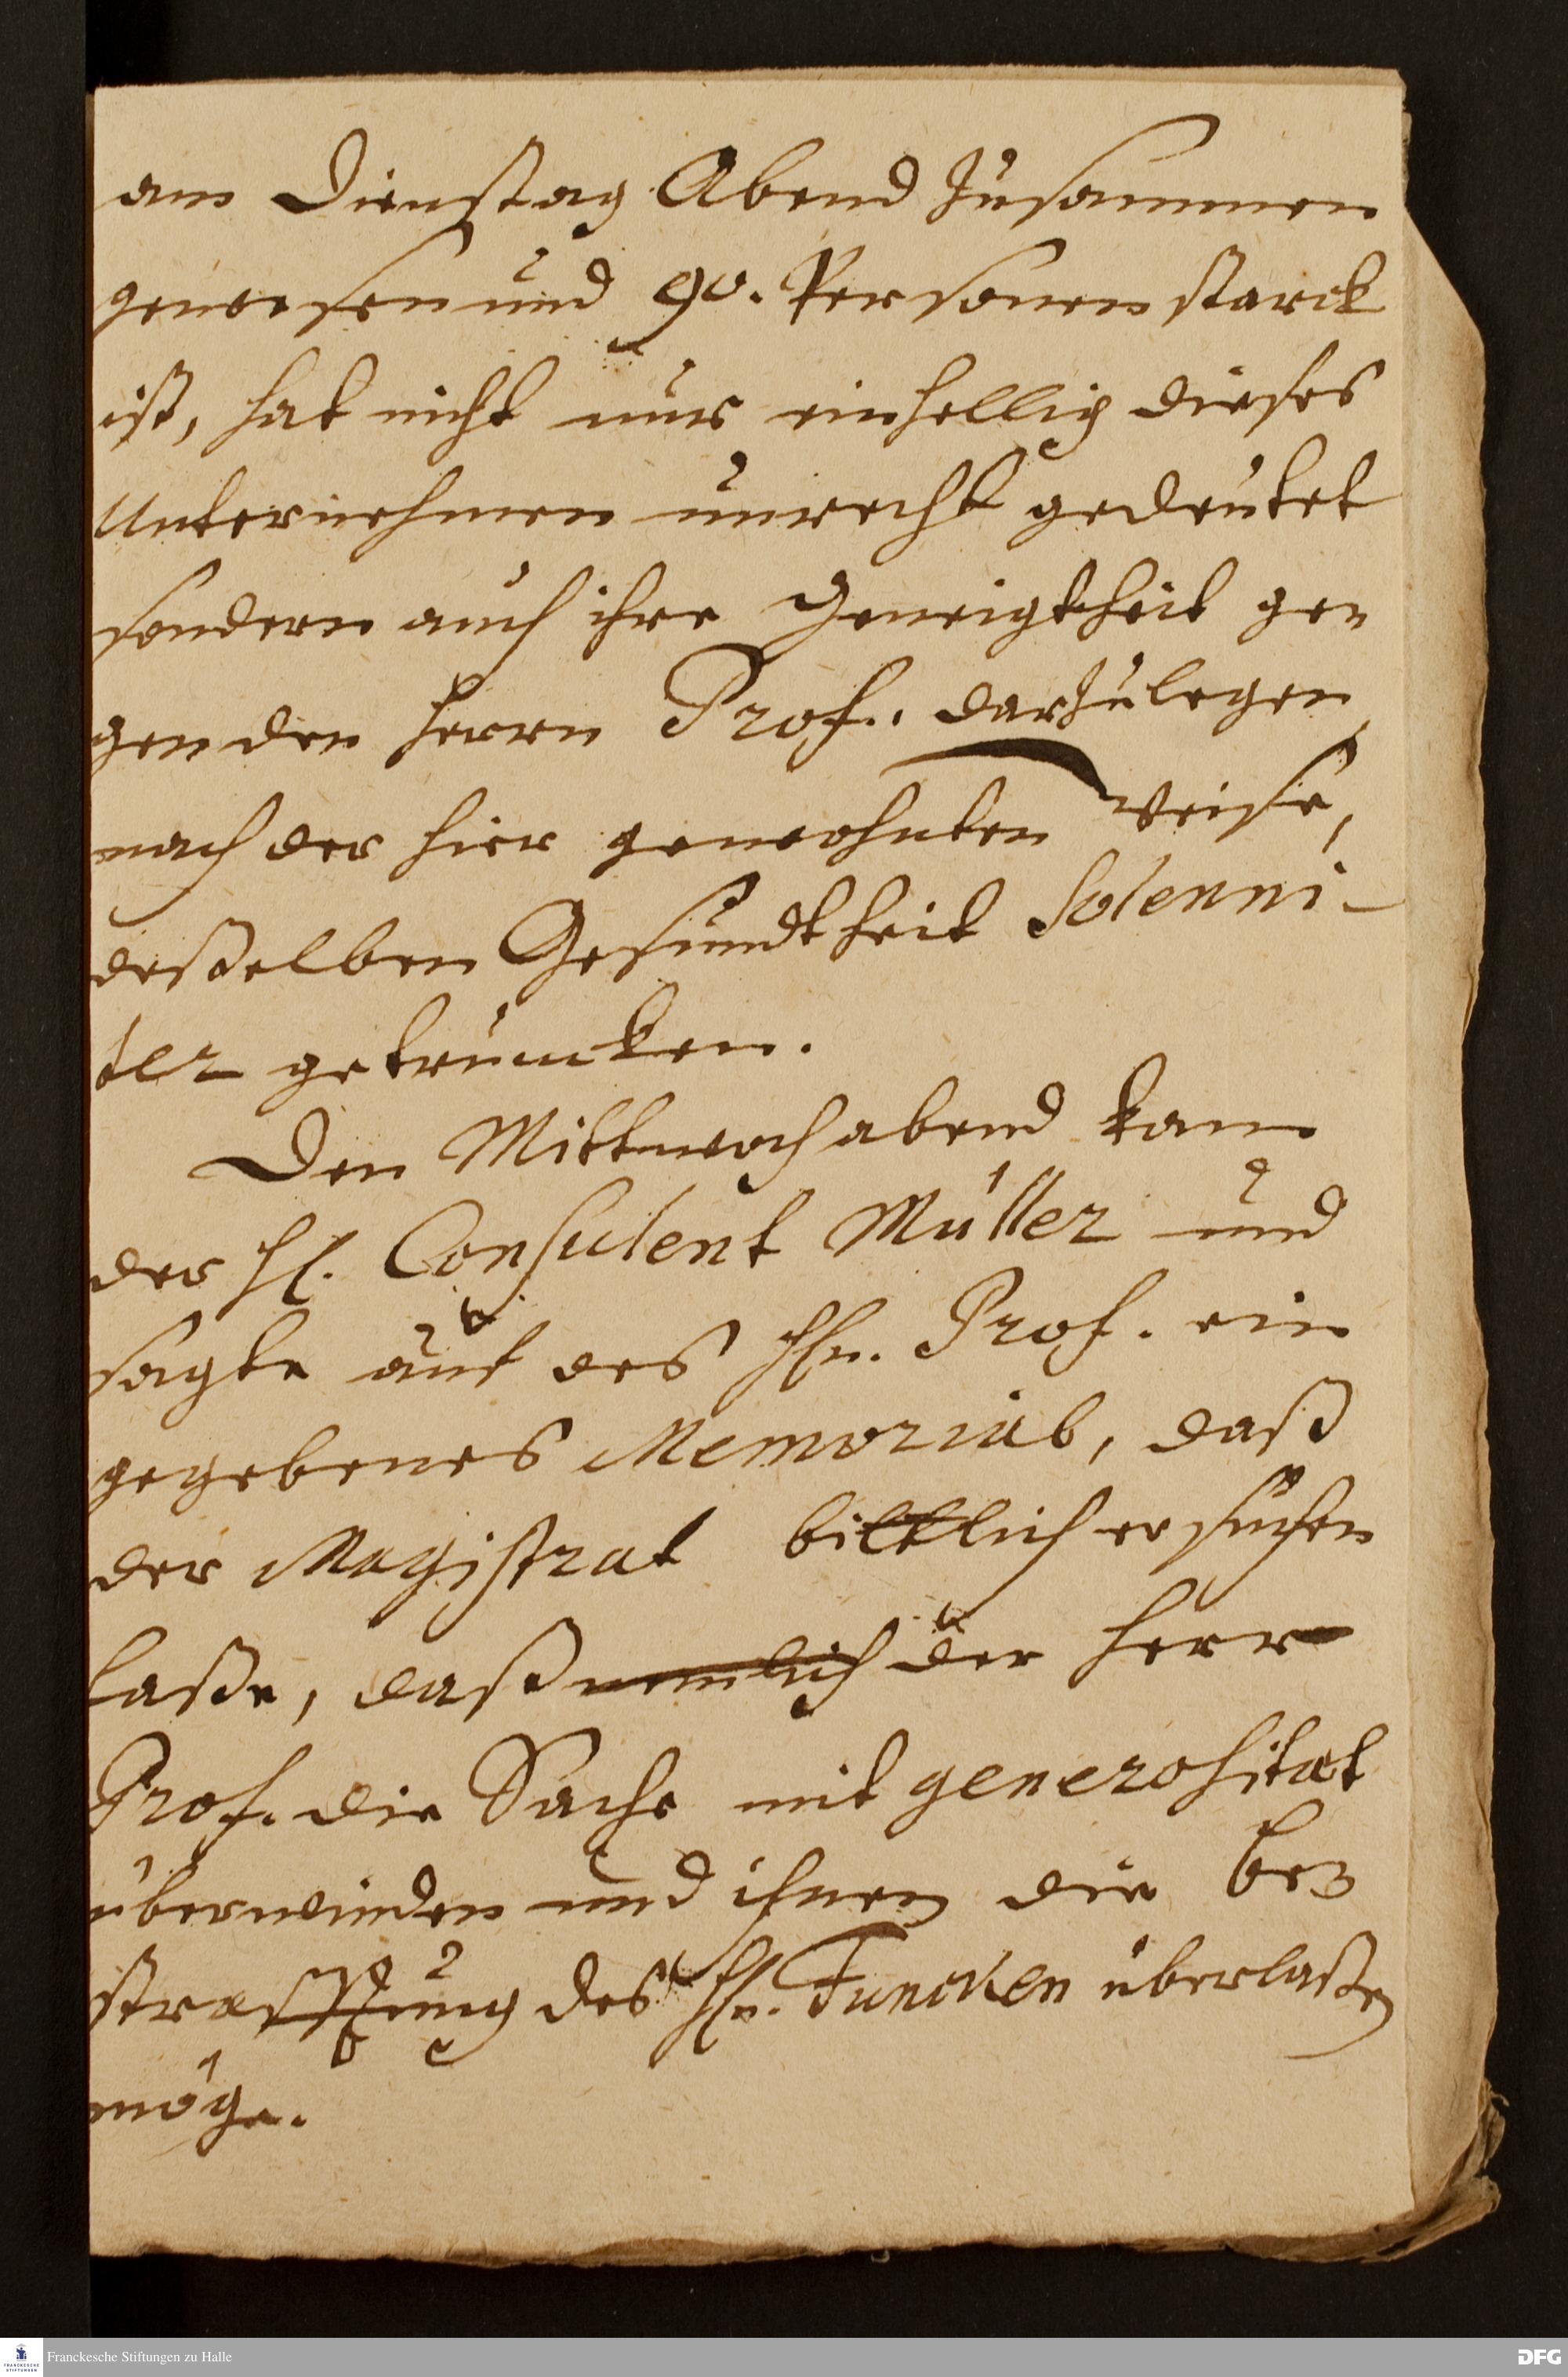 am Dienstag Abend zusammen
gewesen und 90. Personen starck
ist, hat nicht nur einhellig dieses
Unternehmen unrecht gedeutet
sondern auch ihre Geneigtheit ge¬
gen den Herrn Prof.. darzulegen
nach der hier gewohnten Weise,
deßelben Gesundtheit Solenni-
ter getruncken.
Den Mittwoch abend kam
der H. Consulent Müller und
sagte auf des Hn. Prof. ein
gegebenes Memorial, daß
der Magistrat bittlich ersuchen
laße, daß nemlich der Herr
Prof. die Sache mit generositat
überwinden und ihnen die Be¬
straffung des Hn. Funcken überlaßen
möge.
Franckesche Stiftungen zu Halle
DFG